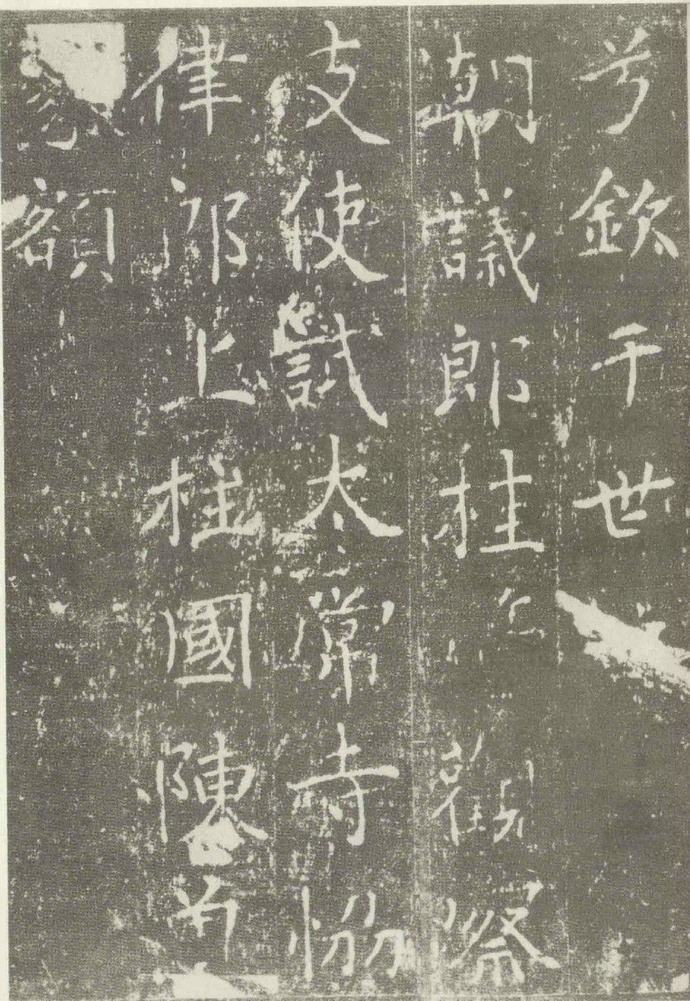 兮欽于世
朝議郎桂觀察
支使試太常寺恊
律郎上柱國陳
額